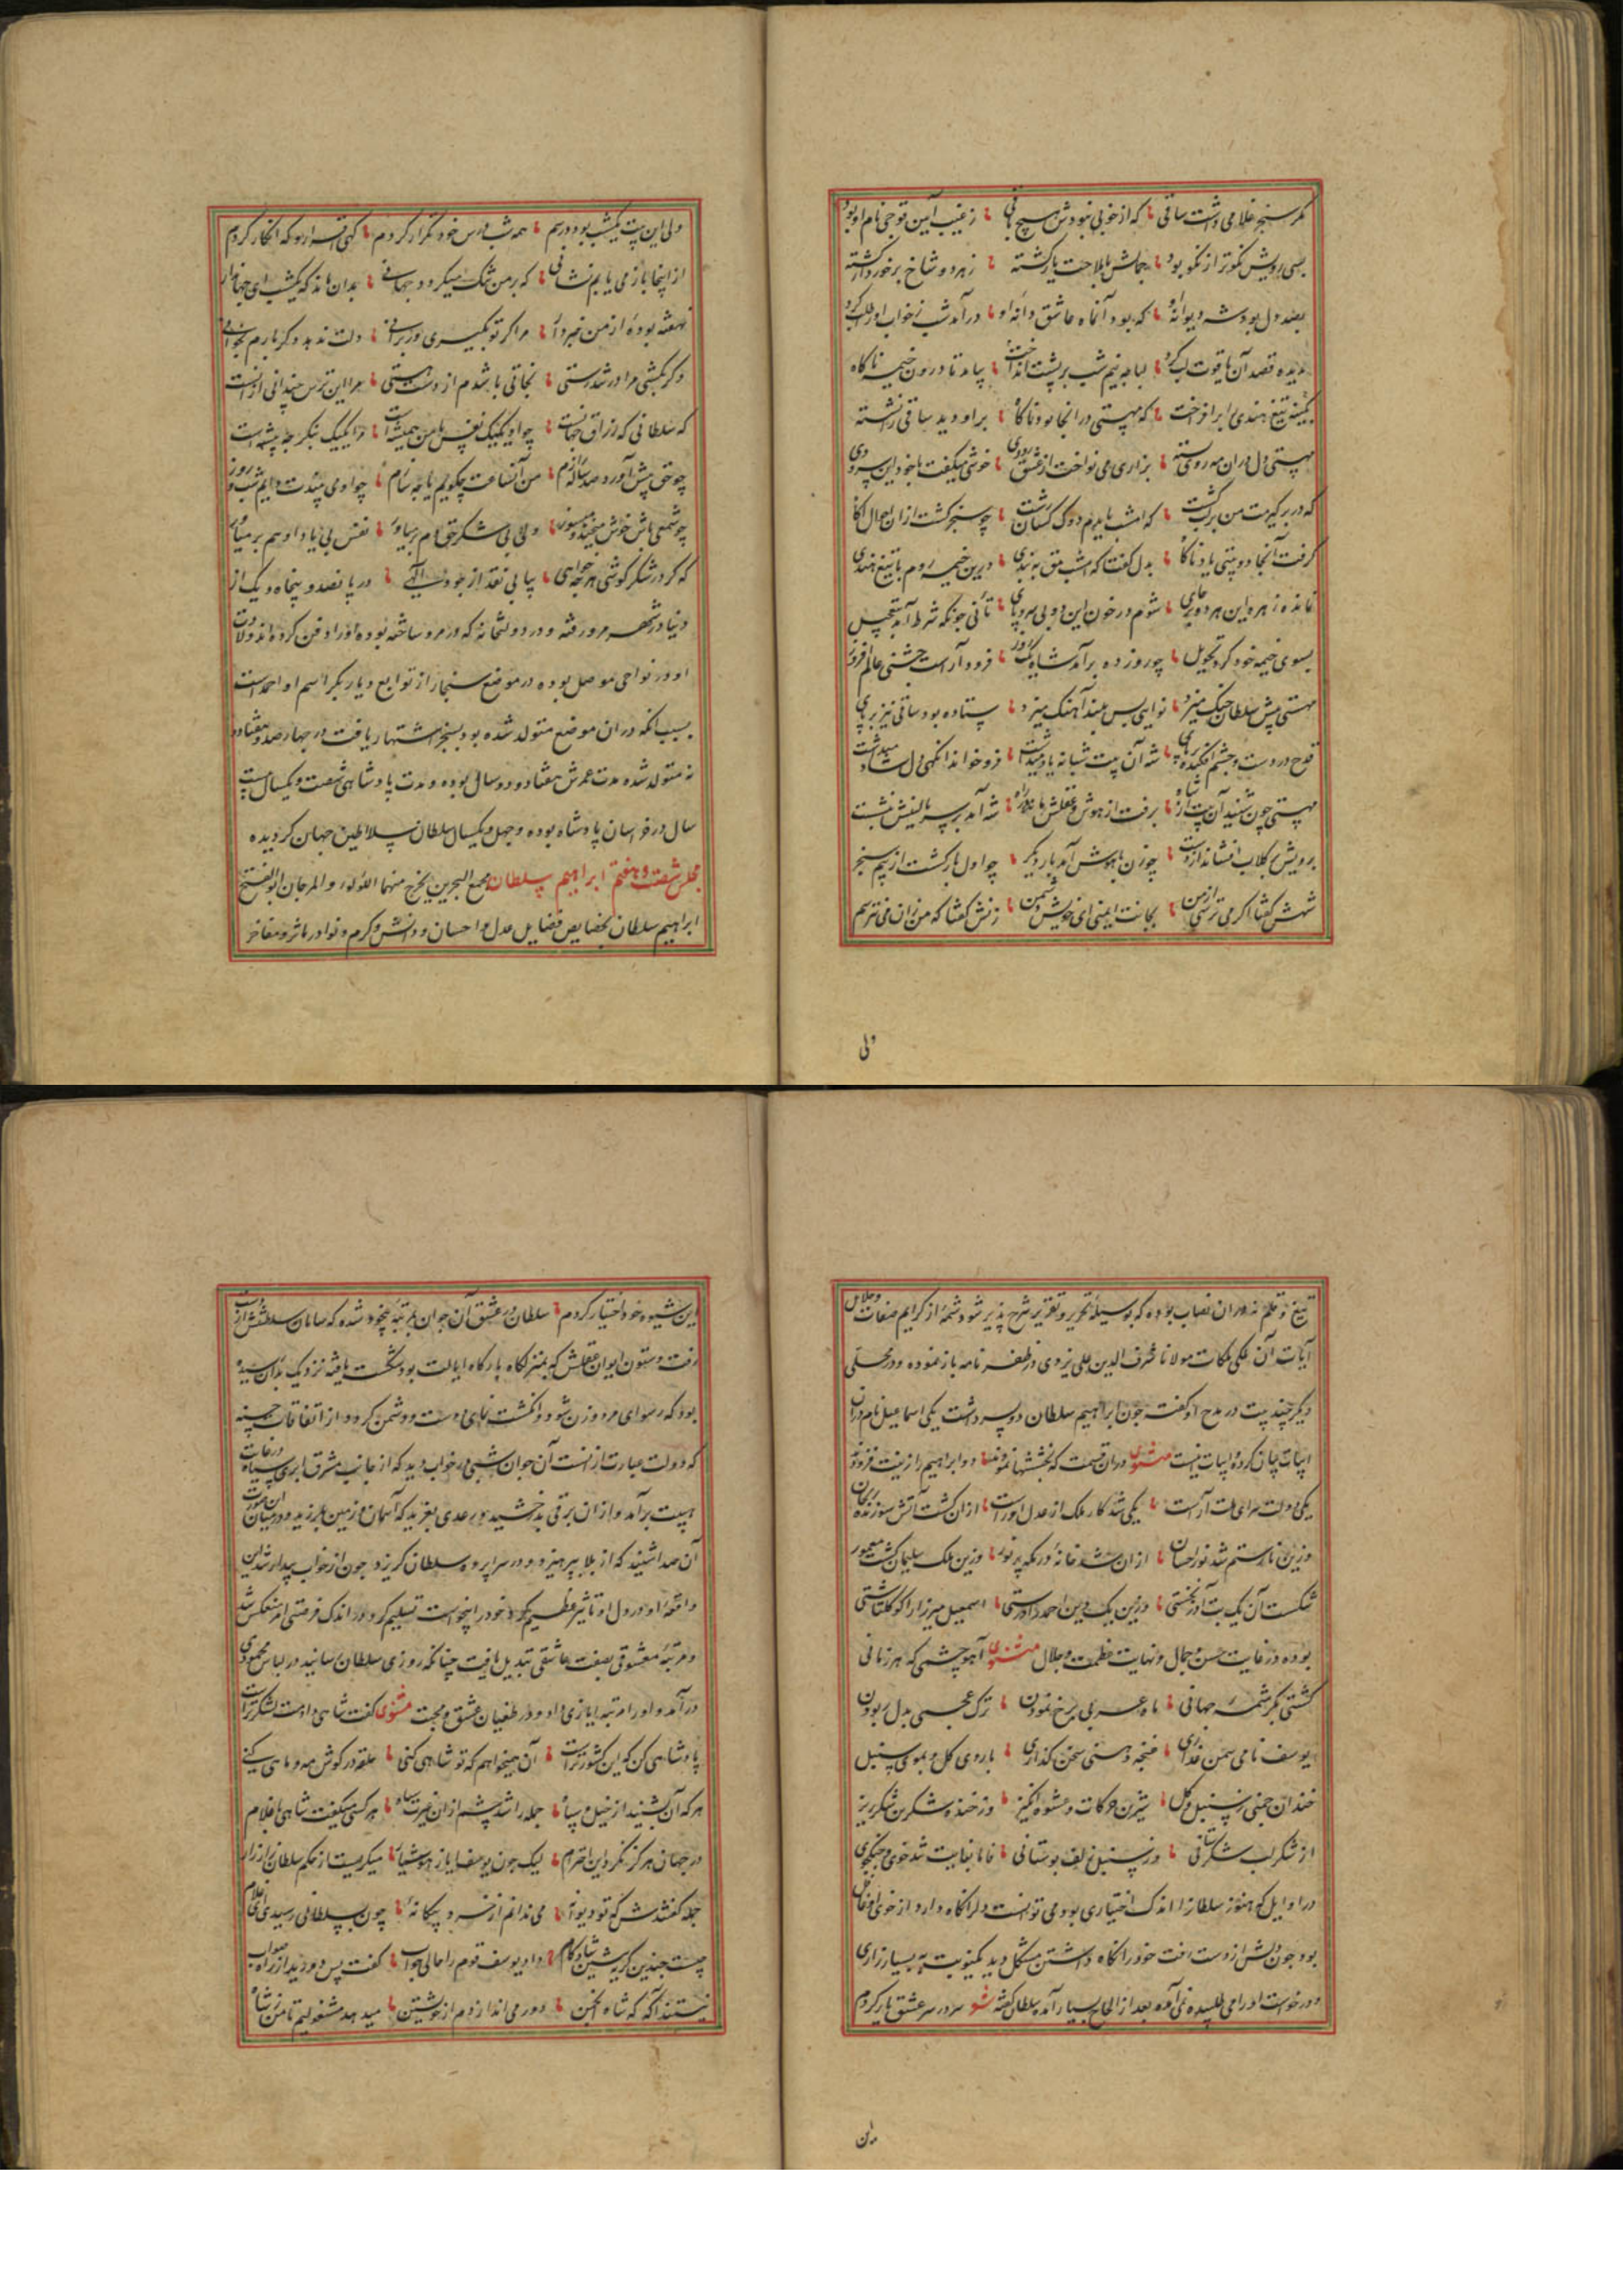 مگر سنجر غلامی داشت ساقی که از خوبی نبودش هیچ باقی ز غیب آیین
بسی رویش نکوتر از نکو بود جمالش با ملاحت یار گشته ز هر دو شاخ برخوردار گشته
بصد دل بود شه دیوانهٔ او که بود آنماه عاشق دانهٔ او درآمد شب ز خواب او
قصد آن یاقوت لب کرد نیم شب بر پشت انداخت بیامد تا درون خیمه ناگاه
تیغ هندی برافراخت که مهستی در انجا بود ناگاه بر او دید ساقی را نشسته
مهستی دل در ان مه روی بسته بزاری می نواخت از عشق رودی خوشی میگفت با خود این سرودی
که در بر گیرمت من کشت که امشب چو سنجر گشت ازان احوال آگاه
گرفت آنجا دو بیتی یاد ناگاه بدل گفت که امشب درین خیمه روم با تیغ هندی
نماند زهره این هر دو بر جای شوم در خون این دو بی سر و پای تأنی جونکه شرط آمد
بسوی خیمه خود کرد تحویل چو روزی ده برآمد شاه یک روز فرود آراست جشنی عالم افروز
مهستی پیش سلطان چنگ میزد نوایی بس بلند آهنگ میزد ستاده بود ساقی نیز بر پای
قدح در دست و چشم افکنده بر پای شه آن بیت شبانه یاد میداشت فرو خواند انگهی دل شاد میداشت
مهستی چون شنید آن بیت از شاه برفت از هوش و عقلش ماند در راه شه آمد بر سر بالینش بنشست
برویش بر گلاب افشاند از دست چو زن با هوش آمد بار دیگر چو اول بار گشت از بیم سنجر
شهش گفتا اگر می ترسی از من بجانت ایمنی ای خویش دشمن زنش گفتا که من زان می نترسم
ولی
ولی این بیت یکشب بود درسم همه شب درس خود تکرار کردم گهی اقرار و گه انکار کردم
از اینجا باز می یابم نشانی که بر من تنگ میگردد جهانی بدان ماند که یکشب ای جهاندار
نهفته بودهٔ از من خبردار مرا گر تو بگیری ور برانی دلت ندهد دگر بارم بخوانی
وگر بکشی مرا در تندرستی نجاتی باشدم از دست هستی مرا این ترس چندانی ازانست
که سلطانی که رزاق جهانست چو او یکیک نفس با من همیشه است مرا یکیک نگر چه پیشه است
چو حق پیش آورد صد ساله رازم من آنساعت چگویم یا چه سازم چو او می بیندت دایم شب و روز
چو شمعی باش خوش میخند و میسوز ولی بی شکر حق دم بر میاور نفس بی یاد او هم بر میاور
که گر در شکر کوشی هر چه خواهی بیابی نقد از جود الهی در پانصد و پنجاه و یک از
دنیا در شهر مرو رفته و در دولتخانه که در مرو ساخته بوده او را دفن کرده اند ولادت
او در نواحی موصل بوده در موضع سنجار از توابع دیار بکر اسم او احمد است
بسبب انکه در ان موضع متولد شده بود بسنجر اشتهار یافت در چهارصد و هفتاد و
نه متولد شده مدت عمرش هفتاد و دو سال بوده و مدت پادشاهی شصت و یکسال بیست
سال در خراسان پادشاه بوده و چهل و یکسال سلطان سلاطین جهان گردیده
مجلس شصت و هفتم ابراهیم سلطان مجمع البحرین یخرج منهما اللؤلؤ و المرجان ابو الفتح
ابراهیم سلطان بخصایص فضایل عدل و احسان و دانش و کرم و نوادر مآثر و مفاخر
تیغ و قلم نه در ان نصاب بوده که بوسیلهٔ تحریر و تقریر شرح پذیر شود شمهٔ از کرایم صفات و جلایل
آیات آن ملکی ملکات مولانا شرف الدین علی یزدی در ظفر نامه باز نموده و در محلی
دیگر چند بیت در مدح او گفته جون ابراهیم سلطان دو پسر داشت یکی اسماعیل نام در ان
ابیات بیان کرده ابیات اینست مثنوی در ان قسمت که بخششها نمودند دو ابراهیم را زینت فزودند
یکی دولت سرای ملت آراست یکی شد کار ملک از عدل او راست ازان گشت آتش سوزنده ریحان
وزین نار ستم شد نور احسان ازان شد خانهٔ در مکه پر نور وزین ملک سلیمان گشت معمور
شکست آن یک بت آزر بخستی وزین یک دین احمد را درستی اسمعیل میرزا را کوکلتاشی
بوده در غایت حسن و جمال و نهایت عظمت و جلال مثنوی آهو چشمی که هر زمانی
کشتی بکرشمه جهانی ماه عربی برخ نمودن ترک عجمی بدل ربودن
یوسف نامی سمن عذاری غنچه دهنی سخن گذاری با روی گل و بموی سنبل
خندان چمنی ز سنبل و گل شیرین حرکات و عشوه انگیز وز خنده شکرین شکر ریز
از شکر لب شکر ستانی وز سنبل زلف بوستانی اما بغایت تند خوی و جنگجوی
در اوایل که هنوز سلطانرا اندک اختیاری بود می توانست دل را نگاه دارد از خوی او غافل
بود جون دلش از دست رفت خود را نگاه داشتن مشکل دید یکنوبت به بسیار زاری
و درخواست او را می طلبیده نمی آمده بعد از الحاح بسیار آمده سلطان گفته شعر سر در سر عشق یار کردم
این شیوه خود اختیار کردم سلطان در عشق آن جوان بمرتبهٔ بیخود شده که سامان سلطنتش از دست
رفت و ستون ایوان عقلش که بمنزلگاه بارگاه ایالت بود شکست یافته نزدیک بدان رسیده
بود که رسوای مرد و زن شود و انگشت نمای دوست و دشمن گردد از اتفاقات حسنه
که دولت عبارت از انست آن جوان شبی در خواب دید که از جانب مشرق ابری سیاه در غایت
هیبت برآمد و ازان برقی بدرخشید و رعدی بغرید که آسمان و زمین بلرزید و در میان ان صورت
آن صدا شنید که از بلا بپرهیز و در سراپرده سلطان گریز جون از خواب بیدار شد این
واقعهٔ او در دل او تاثیر عظیم کرد خود را نخواست تسلیم کرد در اندک فرصتی امر منعکس شد
و مرتبهٔ معشوقی بصفت عاشقی تبدیل یافت چنانکه روزی سلطان در لباس محمودی
درآمد و او را مرتبه ایازی داد و در طغیان عشق و محبت مثنوی گفت شاهی دادمت لشکر تراست
پادشاهی کن که این کشور تراست آن همیخواهم که تو شاهی کنی حلقه در گوش مه و ماهی کنی
هر که آن بشنید از خیل و سپاه جمله را شد چشم ازان غیرت سیاه هر کسی میگفت شاهی با غلام
در جهان هرگز نکرد این احترام لیک چون یوسف ایاز هوشیار میگریست از حکم سلطان زار زار
جمله گفتندش که تو دیوانهٔ می ندانم از خرد بیگانهٔ چون بسلطانی رسیدی ای غلام
چیست چندین گریه بنشین شادکام داد یوسف قوم را حالی جواب گفت بس دورید از راه صواب
نیستند آگه که شاه انجمن دور می اندازدم از خویشتن میدهد مشغولیم تا من ز شاه